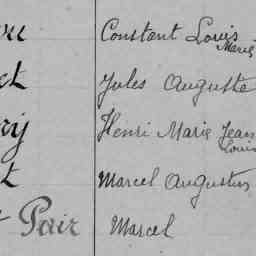 Constant Louis Marie
Jules Auguste
Henri Marie Jean Louis
Marcel Augustin
Pair Marcel